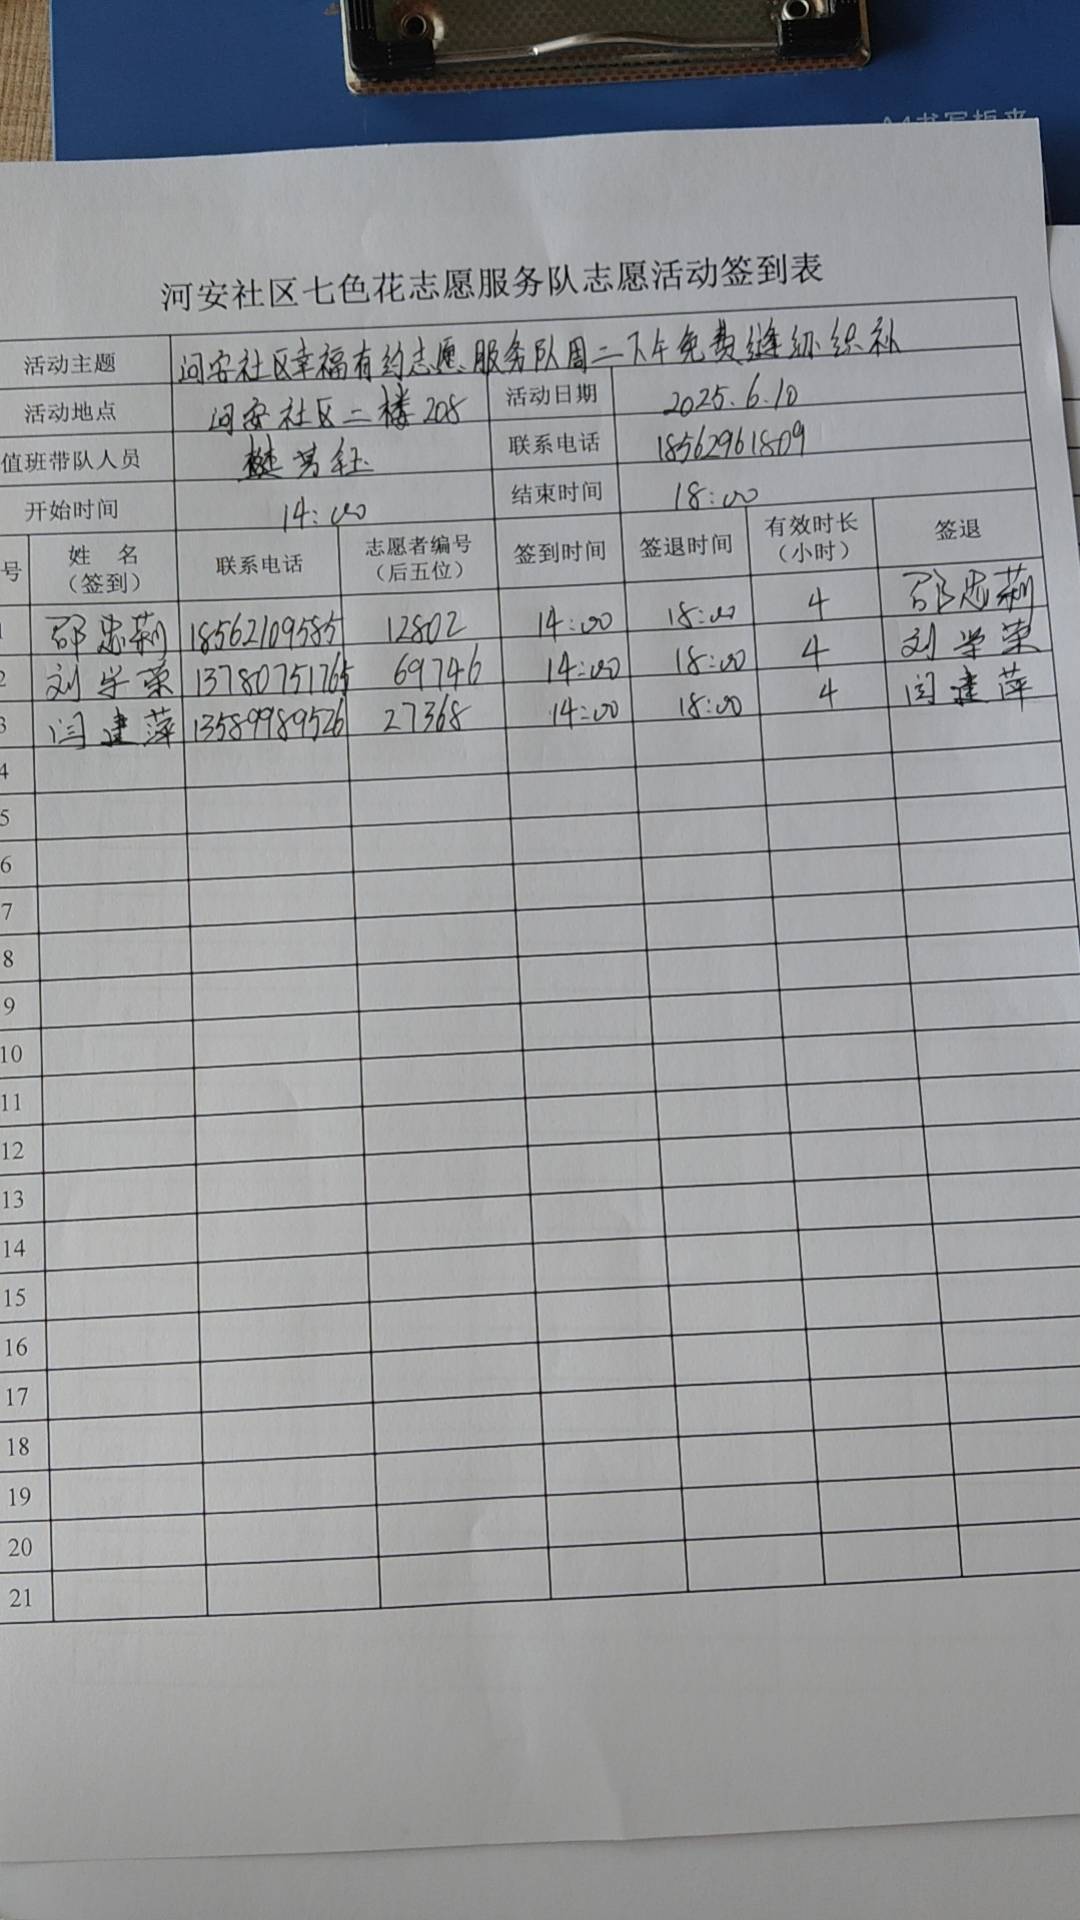 A4书写板夹
河安社区七色花志愿服务队志愿活动签到表
活动主题 河安社区幸福有约志愿服务队周二下午免费缝纫织补
活动地点 河安社区二楼208 活动日期 2025.6.10
值班带队人员 樊芳钰 联系电话 18562961809
开始时间 14:00 结束时间 18:00
号 姓名（签到） 联系电话 志愿者编号（后五位） 签到时间 签退时间 有效时长（小时） 签退
1 邵忠莉 18562109585 12802 14:00 18:00 4 邵忠莉
2 刘学荣 13780751765 69746 14:00 18:00 4 刘学荣
3 闫建萍 13589989526 27368 14:00 18:00 4 闫建萍
4
5
6
7
8
9
10
11
12
13
14
15
16
17
18
19
20
21